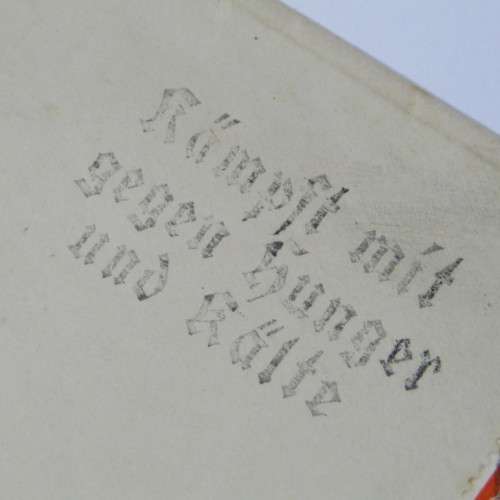 Kämpft mit
gegen Hunger
und Kälte